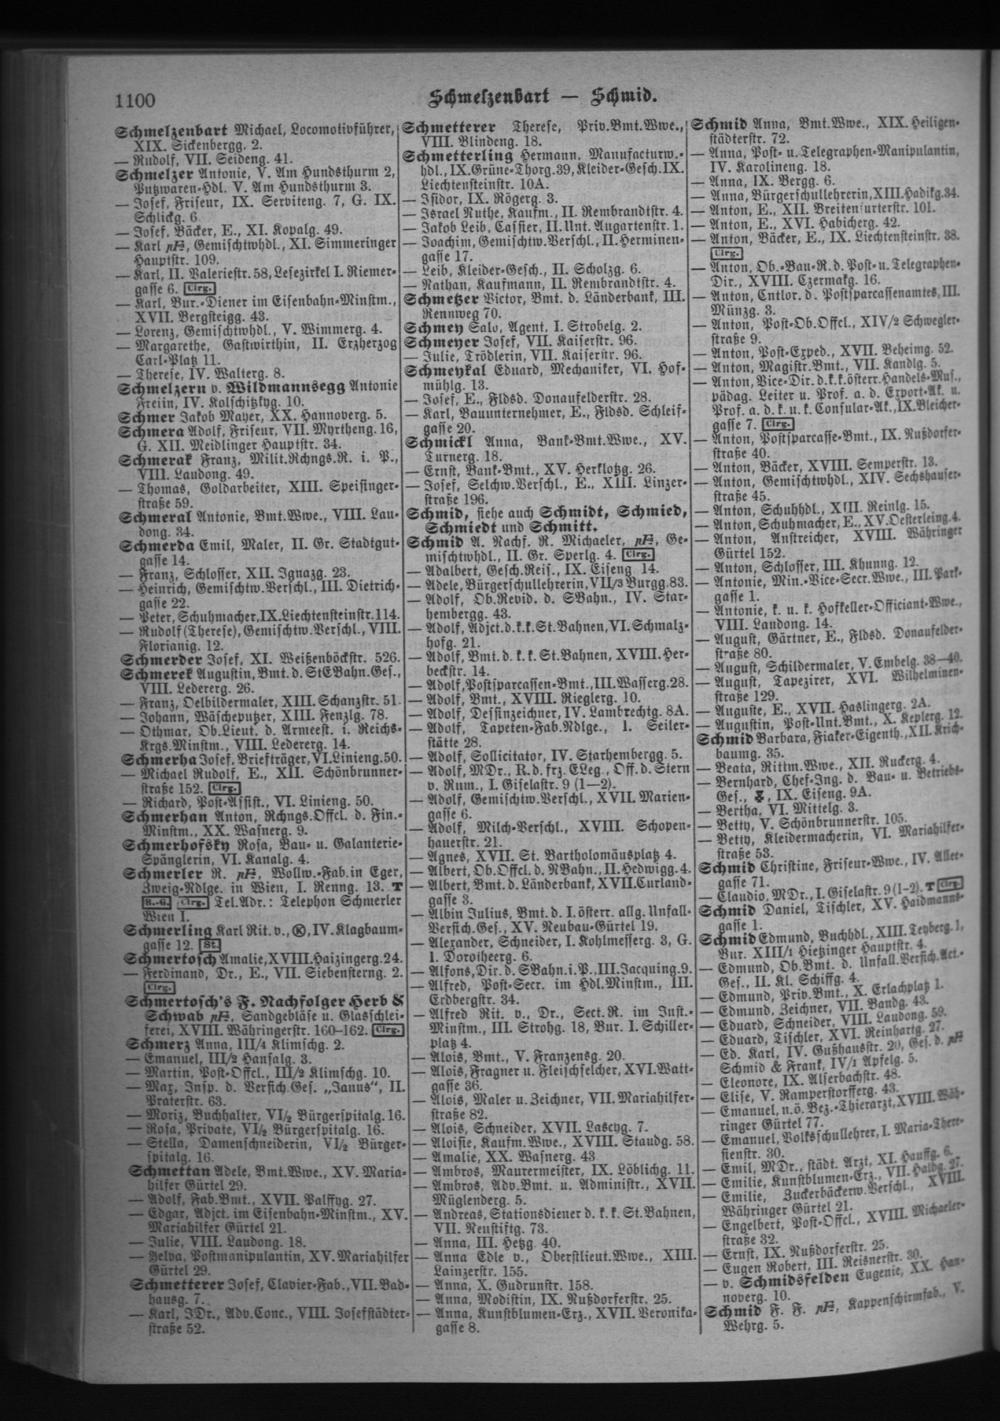 1100
Schmelzenbart — Schmid.
Schmelzenbart Michael, Locomotivführer,
XIX. Sickenbergg. 2.
— Rudolf, VII. Seideng. 41.
Schmelzer Antonie, V. Am Hundsthurm 2,
Putzwaren-Hdl. V. Am Hundsthurm 3.
— Josef, Friseur, IX. Serviteng. 7, G. IX.
Schlickg. 6
— Josef, Bäcker, E., XI. Kopalg. 49.
— Karl, Gemischtwhdl., XI. Simmeringer
Hauptstr. 109.
— Karl, II. Valeriestr. 58, Lesezirkel I. Riemer-
gasse 6. Clrg.
— Karl, Bur.-Diener im Eisenbahn-Minstm.,
XVII. Bergsteigg. 43.
— Lorenz, Gemischtwhdl., V. Wimmerg. 4.
— Margarethe, Gastwirthin, II. Erzherzog
Carl-Platz 11.
— Therese, IV. Walterg. 8.
Schmelzern v. Wildmannsegg Antonie
Freiin, IV. Kolschitzkyg. 10.
Schmer Jakob Mayer, XX. Hannoverg. 5.
Schmera Adolf, Friseur, VII. Myrtheng. 16,
G. XII. Meidlinger Hauptstr. 34.
Schmerak Franz, Milit.Rchngs.R. i. P.,
VIII. Laudong. 49.
— Thomas, Goldarbeiter, XIII. Speisinger-
straße 59.
Schmeral Antonie, Bmt.Wwe., VIII. Lau-
dong. 34.
Schmerda Emil, Maler, II. Gr. Stadtgut-
gasse 14.
— Franz, Schlosser, XII. Ignazg. 23.
— Heinrich, Gemischtw.Verschl., III. Dietrich-
gasse 22.
— Peter, Schuhmacher, IX. Liechtensteinstr. 114.
— Rudolf (Therese), Gemischtw.Verschl., VIII.
Florianig. 12.
Schmerder Josef, XI. Weißenböckstr. 526.
Schmerek Augustin, Bmt. d. StEBahn.Ges.,
VIII. Ledererg. 26.
— Franz, Oelbildermaler, XIII. Schanzstr. 51.
— Johann, Wäscheputzer, XIII. Fenzlg. 78.
— Othmar, Ob.Lieut. d. Armeest. i. Reichs-
Krgs.Minstm., VIII. Ledererg. 14.
Schmerha Josef, Briefträger, VI. Linieng. 50.
— Michael Rudolf, E., XII. Schönbrunner-
straße 152. Clrg.
— Richard, Post-Assist., VI. Linieng. 50.
Schmerhan Anton, Rchngs.Offcl. d. Fin.-
Minstm., XX. Wasnerg. 9.
Schmerhofsky Rosa, Bau- u. Galanterie-
Spänglerin, VI. Kanalg. 4.
Schmerler R., Wollw.-Fab. in Eger,
Zweig-Ndlge. in Wien, I. Renng. 13.
Clrg. Tel.Adr.: Telephon Schmerler
Wien I.
Schmerling Karl Rit. v., IV. Klagbaum-
gasse 12. St.
Schmertosch Amalie, XVIII. Haizingerg. 24.
— Ferdinand, Dr., E., VII. Siebensterng. 2.
Clrg.
Schmertosch's F. Nachfolger Herb &
Schwab, Sandgebläse u. Glasschlei-
ferei, XVIII. Währingerstr. 160–162. Clrg.
Schmerz Anna, III/4 Klimschg. 2.
— Emanuel, III/2 Hansalg. 3.
— Martin, Post-Offcl., III/2 Klimschg. 10.
— Max, Insp. d. Versich.Ges. „Janus“, II.
Praterstr. 63.
— Moriz, Buchhalter, VI/2 Bürgerspitalg. 16.
— Rosa, Private, VI/2 Bürgerspitalg. 16.
— Stella, Damenschneiderin, VI/2 Bürger-
spitalg. 16.
Schmettan Adele, Bmt.Wwe., XV. Maria-
hilfer Gürtel 29.
— Adolf, Fab.Bmt., XVII. Palffyg. 27.
— Edgar, Adjct. im Eisenbahn-Minstm., XV.
Mariahilfer Gürtel 21.
— Julie, VIII. Laudong. 18.
— Selva, Postmanipulantin, XV. Mariahilfer
Gürtel 29.
Schmetterer Josef, Clavier-Fab., VII. Bad-
hausg. 7.
— Karl, JDr., Adv.Conc., VIII. Josefstädter-
straße 52.
Schmetterer Therese, Priv.Bmt.Wwe.,
VIII. Blindeng. 18.
Schmetterling Hermann, Manufacturw.-
hdl., IX. Grüne-Thorg. 39, Kleider-Gesch. IX.
Liechtensteinstr. 10A.
— Isidor, IX. Rögerg. 3.
— Israel Ruthe, Kaufm., II. Rembrandtstr. 4.
— Jakob Leib, Cassier, II. Unt. Augartenstr. 1.
— Joachim, Gemischtw.Verschl., II. Herminen-
gasse 17.
— Leib, Kleider-Gesch., II. Scholzg. 6.
— Nathan, Kaufmann, II. Rembrandtstr. 4.
Schmetzer Victor, Bmt. d. Länderbank, III.
Rennweg 70.
Schmey Salo, Agent, I. Strobelg. 2.
Schmeyer Josef, VII. Kaiserstr. 96.
— Julie, Trödlerin, VII. Kaiserstr. 96.
Schmeykal Eduard, Mechaniker, VI. Hof-
mühlg. 13.
— Josef, E., Fldsd. Donaufelderstr. 28.
— Karl, Bauunternehmer, E., Fldsd. Schleif-
gasse 20.
Schmickl Anna, Bank-Bmt.Wwe., XV.
Turnerg. 18.
— Ernst, Bank-Bmt., XV. Herklotzg. 26.
— Josef, Selchw.Verschl., E., XIII. Linzer-
straße 196.
Schmid, siehe auch Schmidt, Schmied,
Schmiedt und Schmitt.
Schmid A. Nachf. R. Michaeler, Ge-
mischtwhdl., II. Gr. Sperlg. 4. Clrg.
— Adalbert, Gesch.Reis., IX. Eiseng. 14.
— Adele, Bürgerschullehrerin, VII/3 Burgg. 83.
— Adolf, Ob.Revid. d. SBahn., IV. Star-
hembergg. 43.
— Adolf, Adjct. d.k.k. St.Bahnen, VI. Schmalz-
hofg. 21.
— Adolf, Bmt. d. k. k. St.Bahnen, XVIII. Her-
beckstr. 14.
— Adolf, Postsparcassen-Bmt., III. Wasserg. 28.
— Adolf, Bmt., XVIII. Rieglerg. 10.
— Adolf, Dessinzeichner, IV. Lambrechtg. 8A.
— Adolf, Tapeten-Fab.Ndlge., I. Seiler-
stätte 28.
— Adolf, Sollicitator, IV. Starhembergg. 5.
— Adolf, MDr., R. d. frz. ELeg., Off. d. Stern
v. Rum., I. Giselastr. 9 (1–2).
— Adolf, Gemischtw.Verschl., XVII. Marien-
gasse 6.
— Adolf, Milch-Verschl., XVIII. Schopen-
hauerstr. 21.
— Agnes, XVII. St. Bartholomäusplatz 4.
— Albert, Ob.Offcl. d. NBahn., II. Hedwigg. 4.
— Albert, Bmt. d. Länderbank, XVII. Curland-
gasse 3.
— Albin Julius, Bmt. d. I. österr. allg. Unfall-
Versich.Ges., XV. Neubau-Gürtel 19.
— Alexander, Schneider, I. Kohlmesserg. 3, G.
I. Dorotheerg. 6.
— Alfons, Dir. d. SBahn. i. P., III. Jacquing. 9.
— Alfred, Post-Secr. im Hdl.Minstm., III.
Erdbergstr. 34.
— Alfred Rit. v., Dr., Sect.R. im Just.-
Minstm., III. Strohg. 18, Bur. I. Schiller-
platz 4.
— Alois, Bmt., V. Franzensg. 20.
— Alois, Fragner u. Fleischselcher, XVI. Watt-
gasse 36.
— Alois, Maler u. Zeichner, VII. Mariahilfer-
straße 82.
— Alois, Schneider, XVII. Lascyg. 7.
— Aloisie, Kaufm.Wwe., XVIII. Staudg. 58.
— Amalie, XX. Wasnerg. 43
— Ambros, Maurermeister, IX. Löblichg. 11.
— Ambros, Adv.Bmt. u. Administr., XVII.
Müglenderg. 5.
— Andreas, Stationsdiener d. k. k. St.Bahnen,
VII. Neustiftg. 73.
— Anna, III. Hetzg. 40.
— Anna Edle v., Oberstlieut.Wwe., XIII.
Lainzerstr. 155.
— Anna, X. Gudrunstr. 158.
— Anna, Modistin, IX. Nußdorferstr. 25.
— Anna, Kunstblumen-Erz., XVII. Veronika-
gasse 8.
Schmid Anna, Bmt.Wwe., XIX. Heiligen-
städterstr. 72.
— Anna, Post- u. Telegraphen-Manipulantin,
IV. Karolineng. 18.
— Anna, IX. Bergg. 6.
— Anna, Bürgerschullehrerin, XIII. Hadikg. 34.
— Anton, E., XII. Breitenfurterstr. 101.
— Anton, E., XVI. Habicherg. 42.
— Anton, Bäcker, E., IX. Liechtensteinstr. 38.
Clrg.
— Anton, Ob.-Bau-R. d. Post- u. Telegraphen-
Dir., XVIII. Czermakg. 16.
— Anton, Cntlor. d. Postsparcassenamtes, III.
Münzg. 3.
— Anton, Post-Ob.Offcl., XIV/2 Schwegler-
straße 9.
— Anton, Post-Exped., XVII. Beheimg. 52.
— Anton, Magistr.Bmt., VII. Kandlg. 5.
— Anton, Vice-Dir. d.k.k. österr. Handels-Mus.,
pädag. Leiter u. Prof. a. d. Export-Ak. u.
Prof. a. d. k. u. k. Consular-Ak., IX. Bleicher-
gasse 7. Clrg.
— Anton, Postsparcasse-Bmt., IX. Nußdorfer-
straße 40.
— Anton, Bäcker, XVIII. Semperstr. 13.
— Anton, Gemischtwhdl., XIV. Sechshauser-
straße 45.
— Anton, Schuhhdl., XIII. Reinlg. 15.
— Anton, Schuhmacher, E., XV. Oesterleing. 4.
— Anton, Anstreicher, XVIII. Währinger
Gürtel 152.
— Anton, Schlosser, III. Khunng. 12.
— Antonie, Min.-Vice-Secr.Wwe., III. Park-
gasse 1.
— Antonie, k. u. k. Hofkeller-Officiant-Wwe.,
VIII. Laudong. 14.
— August, Gärtner, E., Fldsd. Donaufelder-
straße 80.
— August, Schildermaler, V. Embelg. 38–40.
— August, Tapezirer, XVI. Wilhelminen-
straße 129.
— Auguste, E., XVII. Haslingerg. 2A.
— Augustin, Post-Unt.Bmt., X. Keplerg. 12.
Schmid Barbara, Fiaker-Eigenth., XII. Krich-
baumg. 35.
— Beata, Rittm.Wwe., XII. Ruckerg. 4.
— Bernhard, Chef-Ing. d. Bau- u. Betriebs-
Ges., IX. Eiseng. 9A.
— Bertha, VI. Mittelg. 3.
— Betty, V. Schönbrunnerstr. 105.
— Betty, Kleidermacherin, VI. Mariahilfer-
straße 53.
Schmid Christine, Friseur-Wwe., IV. Allee-
gasse 71.
— Claudio, MDr., I. Giselastr. 9 (1–2). Clrg.
Schmid Daniel, Tischler, XV. Haidmanns-
gasse 1.
Schmid Edmund, Buchhdl., XIII. Teybergg. 1,
Bur. XIII/1 Hietzinger Hauptstr. 4.
— Edmund, Ob.Bmt. d. Unfall.Versich.Act.-
Ges., II. Kl. Schiffg. 4.
— Edmund, Priv.Bmt., X. Erlachplatz 1.
— Edmund, Zeichner, VII. Bandg. 43.
— Eduard, Schneider, VIII. Laudong. 59.
— Eduard, Tischler, XVI. Reinhartg. 27.
— Ed. Karl, IV. Gußhausstr. 20, Ges. d.
Schmid & Frank, IV/1 Apfelg. 5.
— Eleonore, IX. Alserbachstr. 48.
— Elise, V. Ramperstorfferg. 43.
— Emanuel, n.ö. Bez.-Thierarzt, XVIII. Wäh-
ringer Gürtel 77.
— Emanuel, Volksschullehrer, I. Maria-There-
sienstr. 30.
— Emil, MDr., städt. Arzt, XI. Hauffg. 6.
— Emilie, Kunstblumen-Erz., VII. Halbg. 27.
— Emilie, Zuckerbäckerw.Verschl., XVIII.
Währinger Gürtel 21.
— Engelbert, Post-Offcl., XVIII. Michaeler-
straße 32.
— Ernst, IX. Nußdorferstr. 25.
— Eugen Robert, III. Reisnerstr. 30.
— v. Schmidsfelden Eugenie, XX. Han-
noverg. 10.
Schmid F. F., Kappenschirmfab., V.
Wehrg. 5.